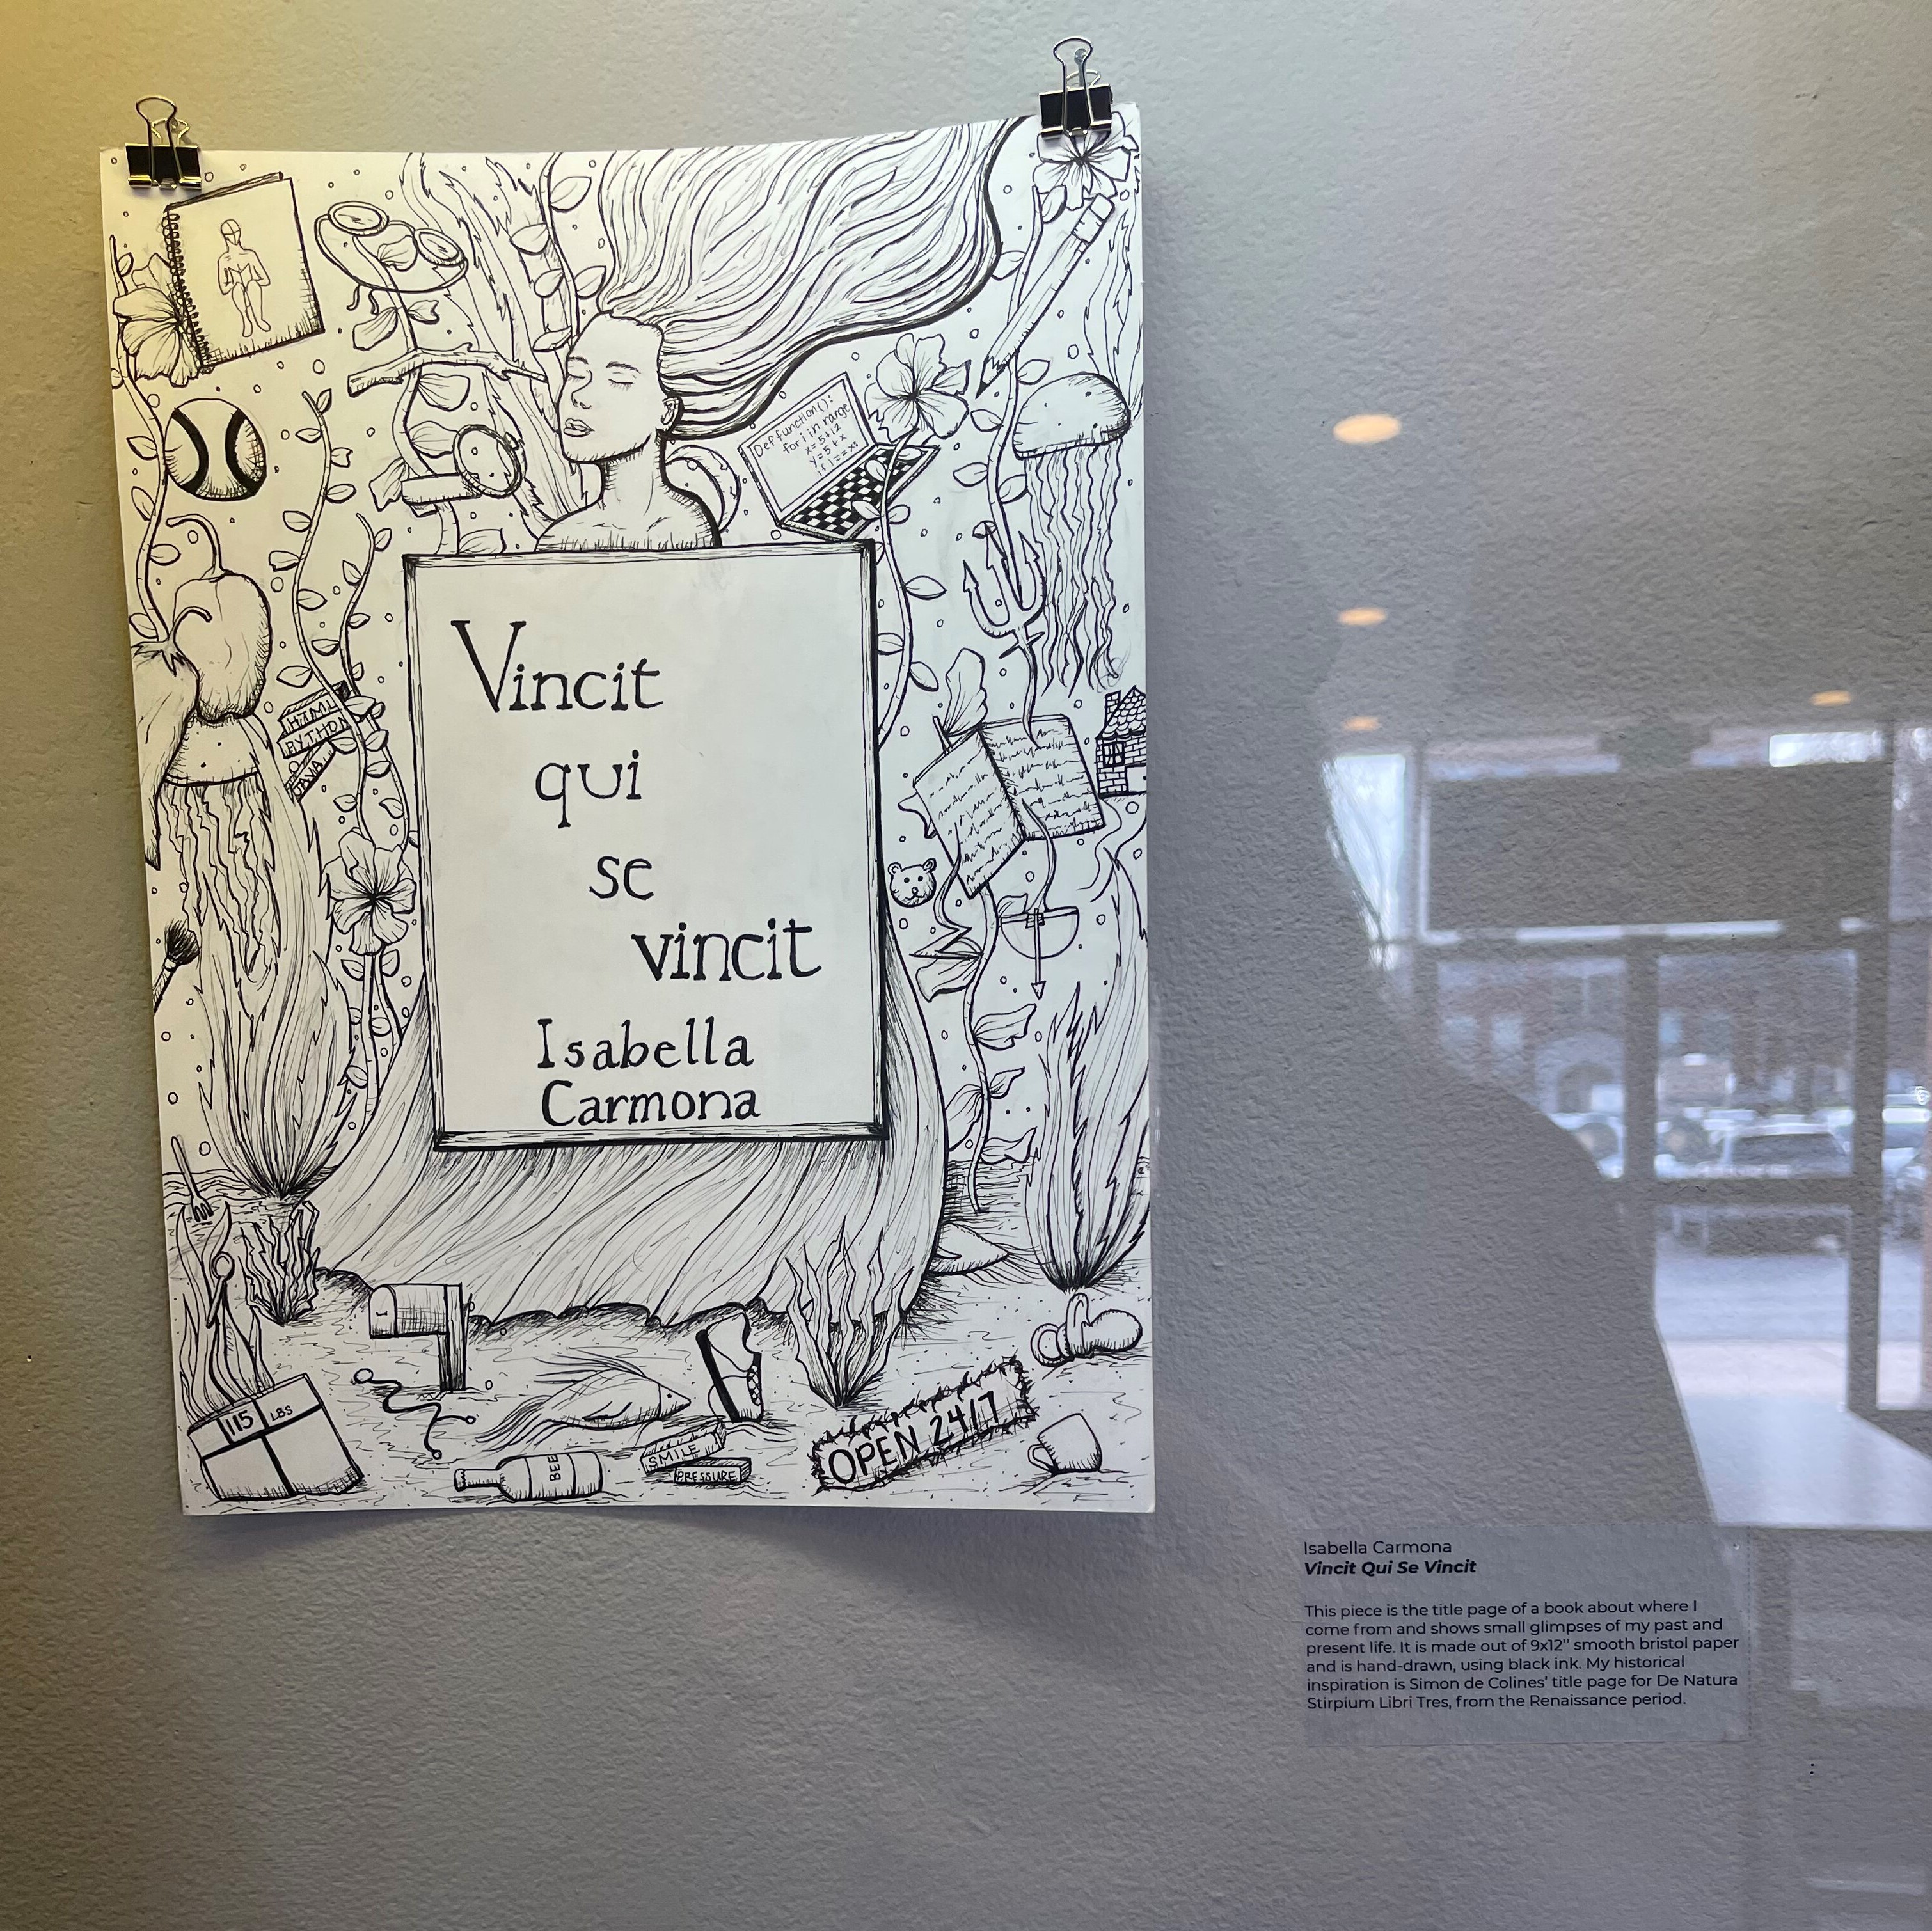 Def function():
for i in range
x = 5+12
y = 5+x
if i == x:
HTML
PYTHON
JAVA
Vincit
qui
se
vincit
Isabella
Carmona
115 LBS
BEE
SMILE
PRESSURE
OPEN 24/7
Isabella Carmona
Vincit Qui Se Vincit
This piece is the title page of a book about where I
come from and shows small glimpses of my past and
present life. It is made out of 9x12" smooth bristol paper
and is hand-drawn, using black ink. My historical
inspiration is Simon de Colines' title page for De Natura
Stirpium Libri Tres, from the Renaissance period.